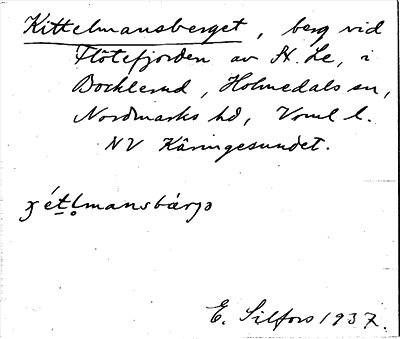 Kittelmansberget, berg vid
Flötefjorden av St. Le, i
Bocklerud, Holmedals sn,
Nordmarks hd, Vrml l.
NV Käringesundet.
ʒét̲l̥mansbárjo
E. Silfors 1937.